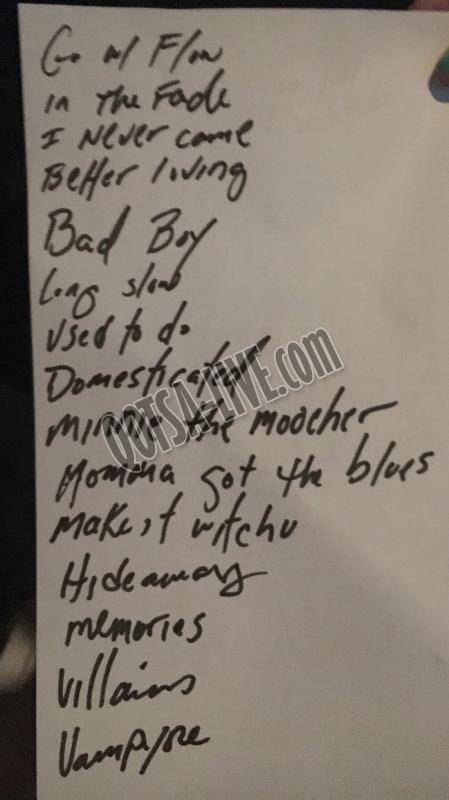 Go w/ Flow
in the Fade
I Never came
Better loving
Bad Boy
long slow
used to do
Domesticated
QOTSALIVE.com
minnie the moocher
Momma got the blues
make it witchu
Hideaway
memories
Villains
Vampyre